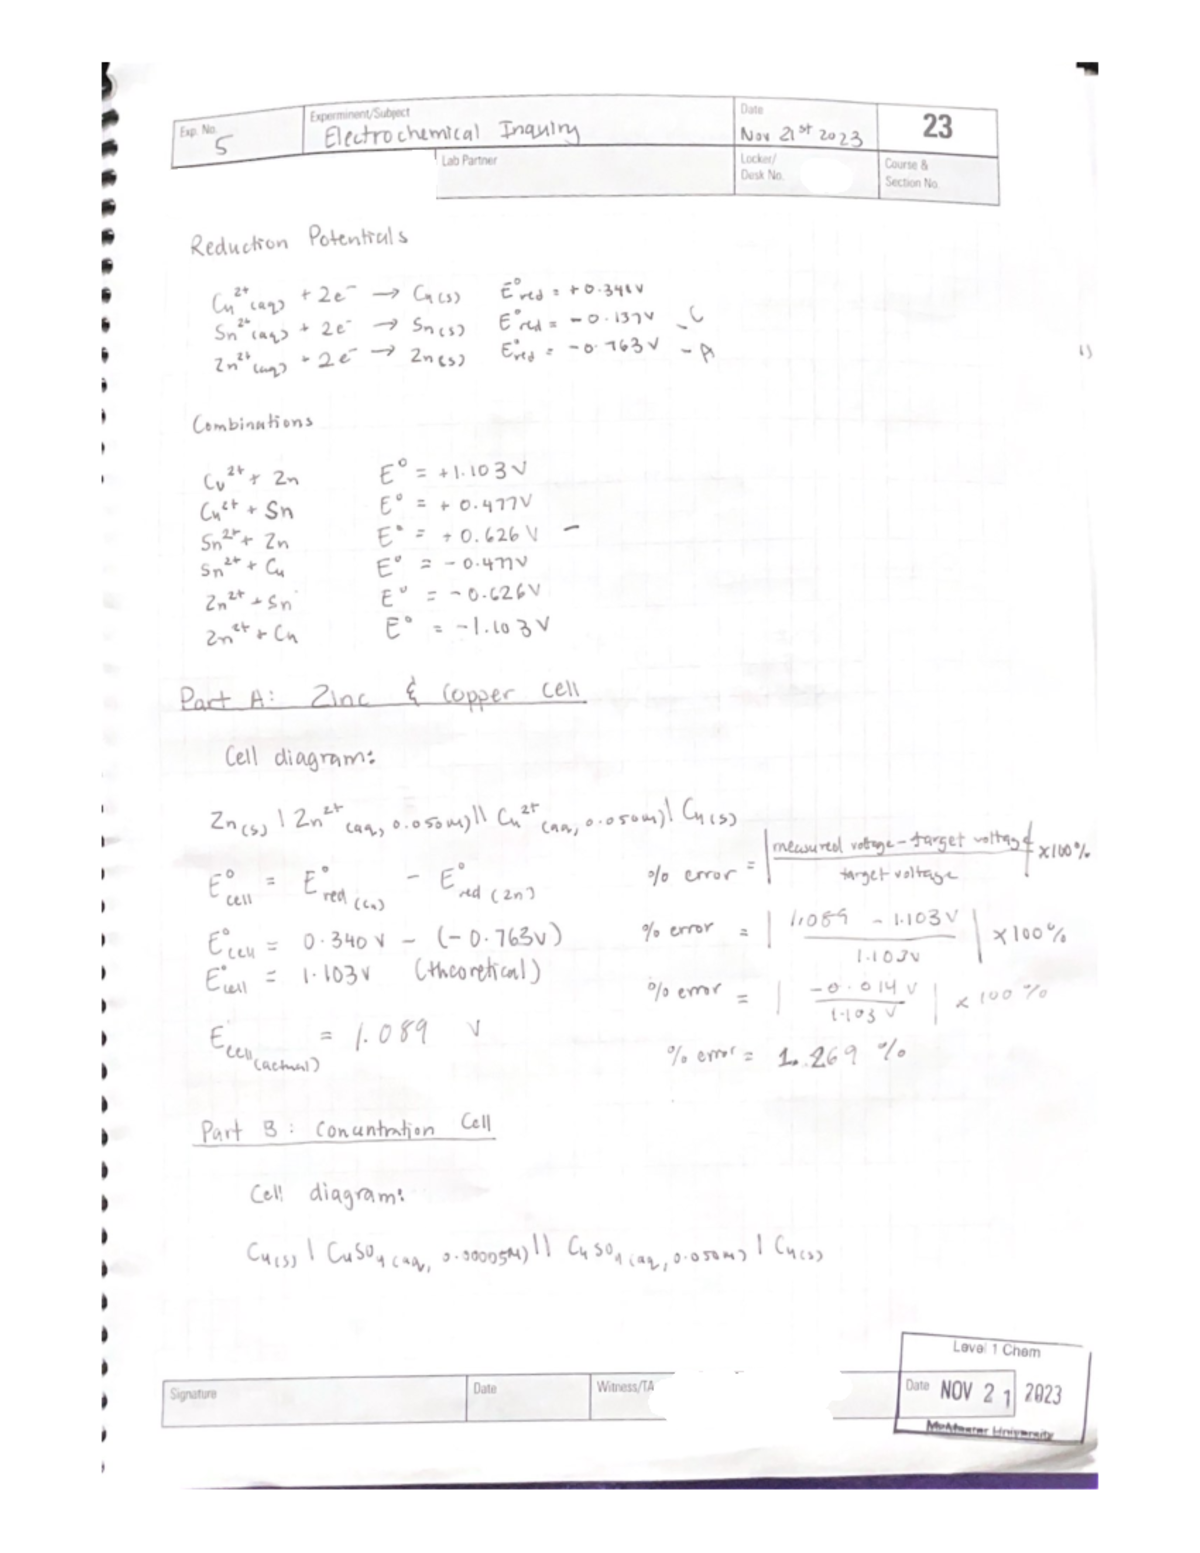 Exp. No. 5
Experminent/Subject Electrochemical Inquiry
Date Nov 21st 2023
23
Lab Partner
Locker/ Desk No.
Course & Section No.
Reduction Potentials
Cu²⁺(aq) + 2e⁻ → Cu(s) E°red = +0.340V
Sn²⁺(aq) + 2e⁻ → Sn(s) E°red = -0.137V - C
Zn²⁺(aq) + 2e⁻ → Zn(s) E°red = -0.763V - A
Combinations
Cu²⁺ + Zn E° = +1.103V
Cu²⁺ + Sn E° = +0.477V
Sn²⁺ + Zn E° = +0.626V -
Sn²⁺ + Cu E° = -0.477V
Zn²⁺ + Sn E° = -0.626V
Zn²⁺ + Cu E° = -1.103V
Part A: Zinc & Copper Cell
Cell diagram:
Zn(s) | Zn²⁺(aq, 0.050M) || Cu²⁺(aq, 0.050M) | Cu(s)
E°cell = E°red (Cu) - E°red (Zn)
E°cell = 0.340V - (-0.763V)
E°cell = 1.103V (theoretical)
Ecell(actual) = 1.089 V
% error = | measured voltage - target voltage / target voltage | x100%
% error = | 1.089 - 1.103V / 1.103V | x100%
% error = | -0.014V / 1.103V | x 100%
% error = 1.269 %
Part B: Concuntration Cell
Cell diagram:
Cu(s) | CuSO₄(aq, 0.00005M) || CuSO₄(aq, 0.050M) | Cu(s)
Signature
Date
Witness/TA
Date
Level 1 Chem
NOV 21 2023
McMaster University